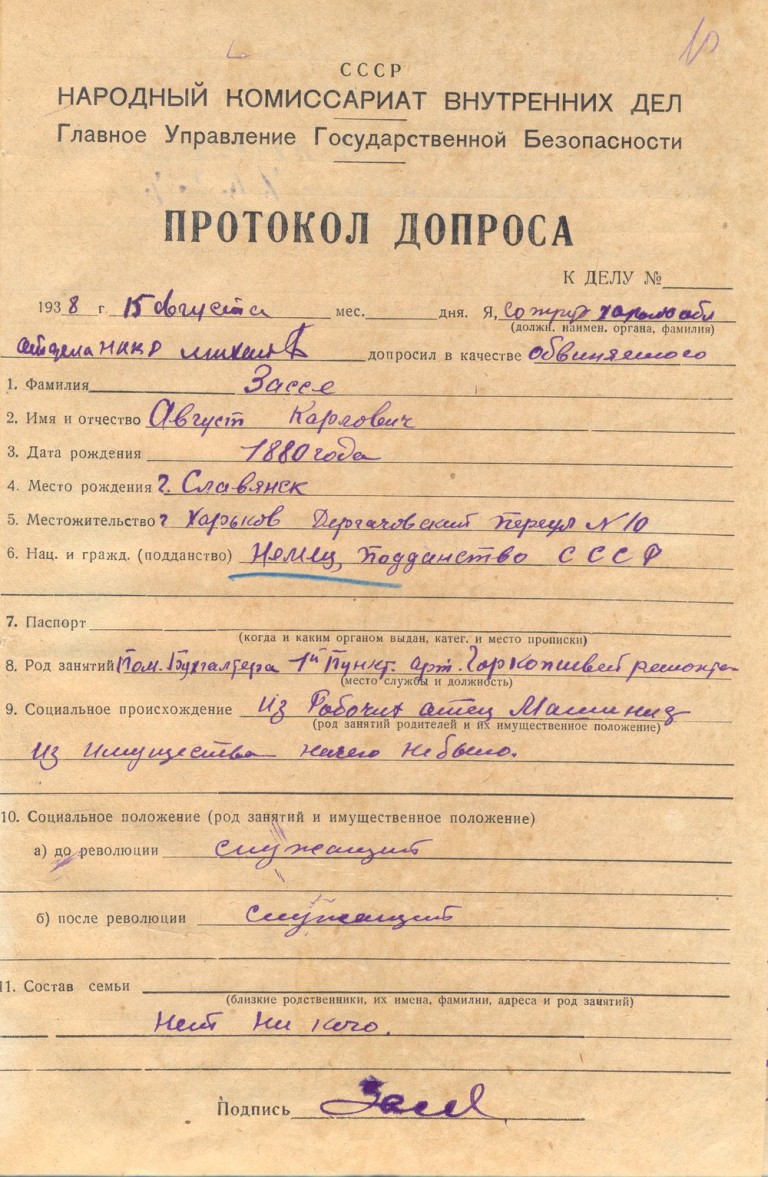 СССР
НАРОДНЫЙ КОМИССАРИАТ ВНУТРЕННИХ ДЕЛ
Главное Управление Государственной Безопасности
ПРОТОКОЛ ДОПРОСА
К ДЕЛУ №
1938 г. 15 августа мес. дня. Я,
(должн. наимен. органа, фамилия)
НКВД допросил в качестве обвиняемого
1. Фамилия Зассе
2. Имя и отчество Август Карлович
3. Дата рождения 1880 года
4. Место рождения г. Славянск
5. Местожительство г Харьков Дергачовский переул N 10
6. Нац. и гражд. (подданство) Немец, подданство СССР
7. Паспорт
(когда и каким органом выдан, катег. и место прописки)
8. Род занятий Пом. Бухгалтера 1й Пункт. арт.
(место службы и должность)
9. Социальное происхождение из Рабочих отец Машинист
(род занятий родителей и их имущественное положение)
из имущества нечего не было.
10. Социальное положение (род занятий и имущественное положение)
а) до революции служащий
б) после революции служащий
11. Состав семьи
(близкие родственники, их имена, фамилии, адреса и род занятий)
Нет Ни кого.
Подпись Зассе